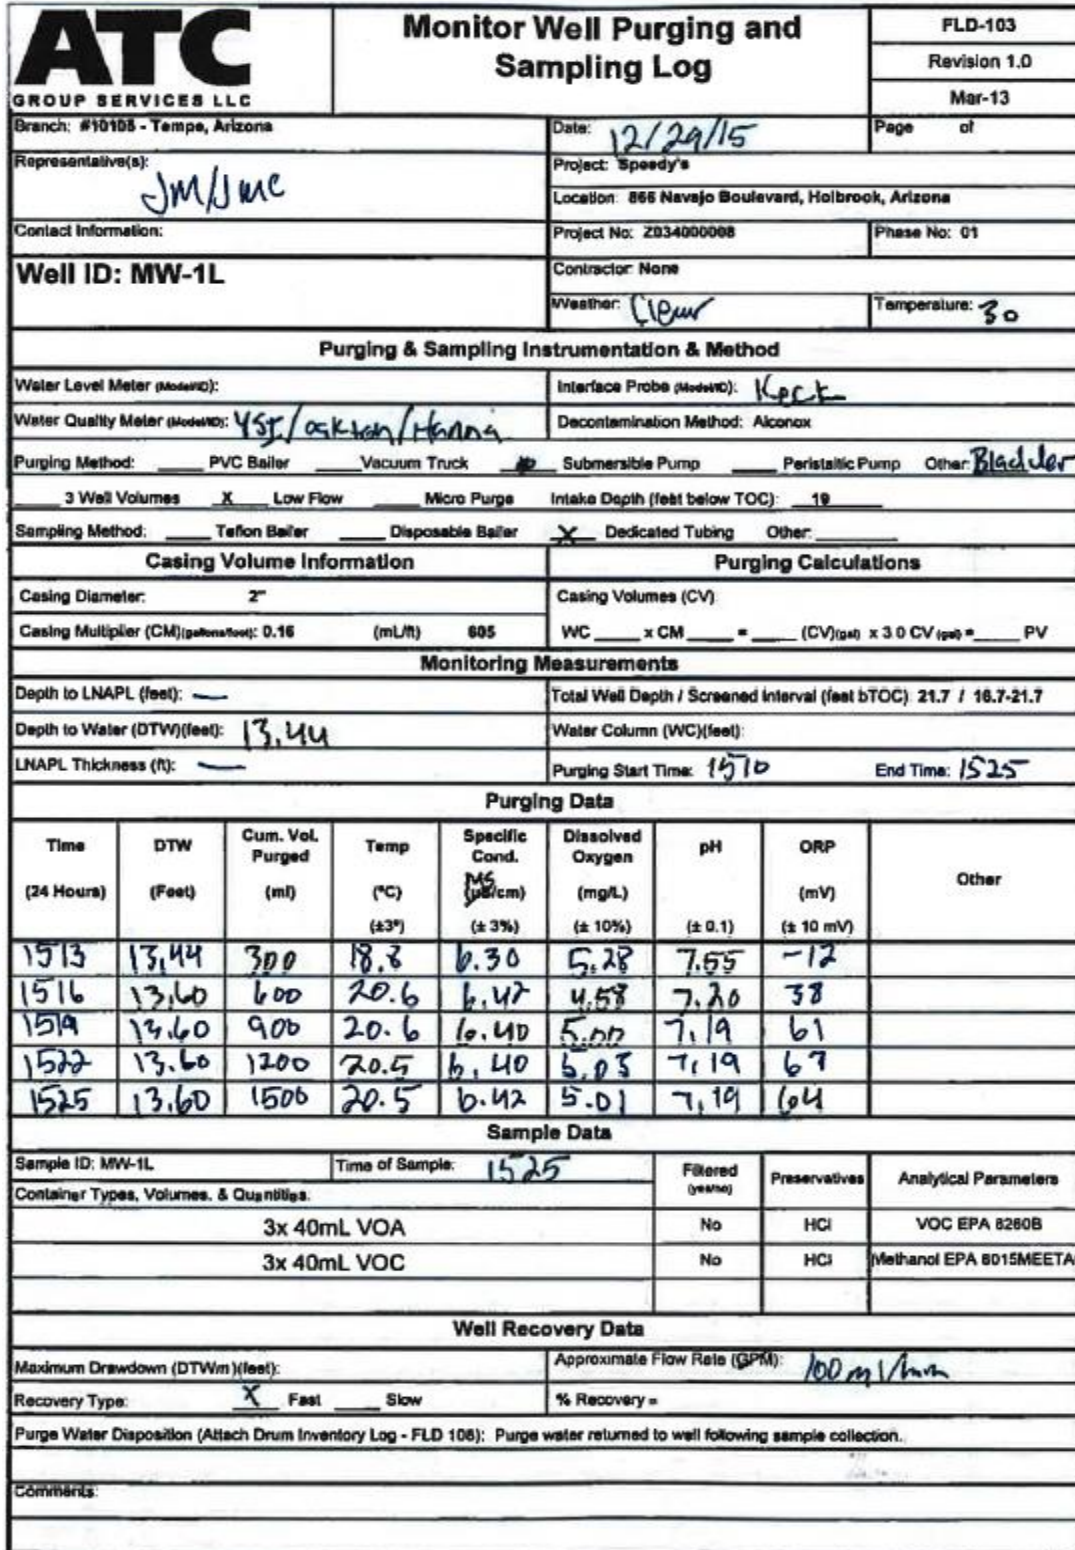 ATC
GROUP SERVICES LLC
Monitor Well Purging and
Sampling Log
FLD-103
Revision 1.0
Mar-13
Branch: #10105 - Tempe, Arizona
Date: 12/29/15
Page of
Representative(s): JM/JMC
Project: Speedy's
Location: 866 Navajo Boulevard, Holbrook, Arizona
Contact Information:
Project No: Z034000008
Phase No: 01
Well ID: MW-1L
Contractor: None
Weather: Clear
Temperature: 30
Purging & Sampling Instrumentation & Method
Water Level Meter (Model/ID):
Interface Probe (Model/ID): Keck
Water Quality Meter (Model/ID): YSI/oakton/Hanna
Decontamination Method: Alconox
Purging Method: ____ PVC Bailer ____ Vacuum Truck ____ Submersible Pump ____ Peristaltic Pump Other: Bladder
____ 3 Well Volumes X Low Flow ____ Micro Purge Intake Depth (feet below TOC): 19
Sampling Method: ____ Teflon Bailer ____ Disposable Bailer X Dedicated Tubing Other: ____
Casing Volume Information
Purging Calculations
Casing Diameter: 2"
Casing Volumes (CV)
Casing Multiplier (CM)(gallons/foot): 0.16 (mL/ft) 605
WC ____ x CM ____ = ____ (CV)(gal) x 3.0 CV (gal) = ____ PV
Monitoring Measurements
Depth to LNAPL (feet): —
Total Well Depth / Screened Interval (feet bTOC) 21.7 / 16.7-21.7
Depth to Water (DTW)(feet): 13.44
Water Column (WC)(feet):
LNAPL Thickness (ft): —
Purging Start Time: 1510 End Time: 1525
Purging Data
Time (24 Hours)
DTW (Feet)
Cum. Vol. Purged (ml)
Temp (°C) (±3°)
Specific Cond. MS (µS/cm) (± 3%)
Dissolved Oxygen (mg/L) (± 10%)
pH (± 0.1)
ORP (mV) (± 10 mV)
Other
1513 13.44 300 18.8 6.30 5.28 7.55 -12
1516 13.60 600 20.6 6.42 4.58 7.20 38
1519 13.60 900 20.6 6.40 5.00 7.19 61
1522 13.60 1200 20.5 6.40 5.03 7.19 67
1525 13.60 1500 20.5 6.42 5.01 7.19 64
Sample Data
Sample ID: MW-1L
Time of Sample: 1525
Filtered (yes/no)
Preservatives
Analytical Parameters
Container Types, Volumes, & Quantities.
3x 40mL VOA No HCl VOC EPA 8260B
3x 40mL VOC No HCl Methanol EPA 8015MEETA
Well Recovery Data
Maximum Drawdown (DTWm)(feet):
Approximate Flow Rate (GPM): 100 ml/min
Recovery Type: X Fast ____ Slow
% Recovery =
Purge Water Disposition (Attach Drum Inventory Log - FLD 108): Purge water returned to well following sample collection.
Comments: